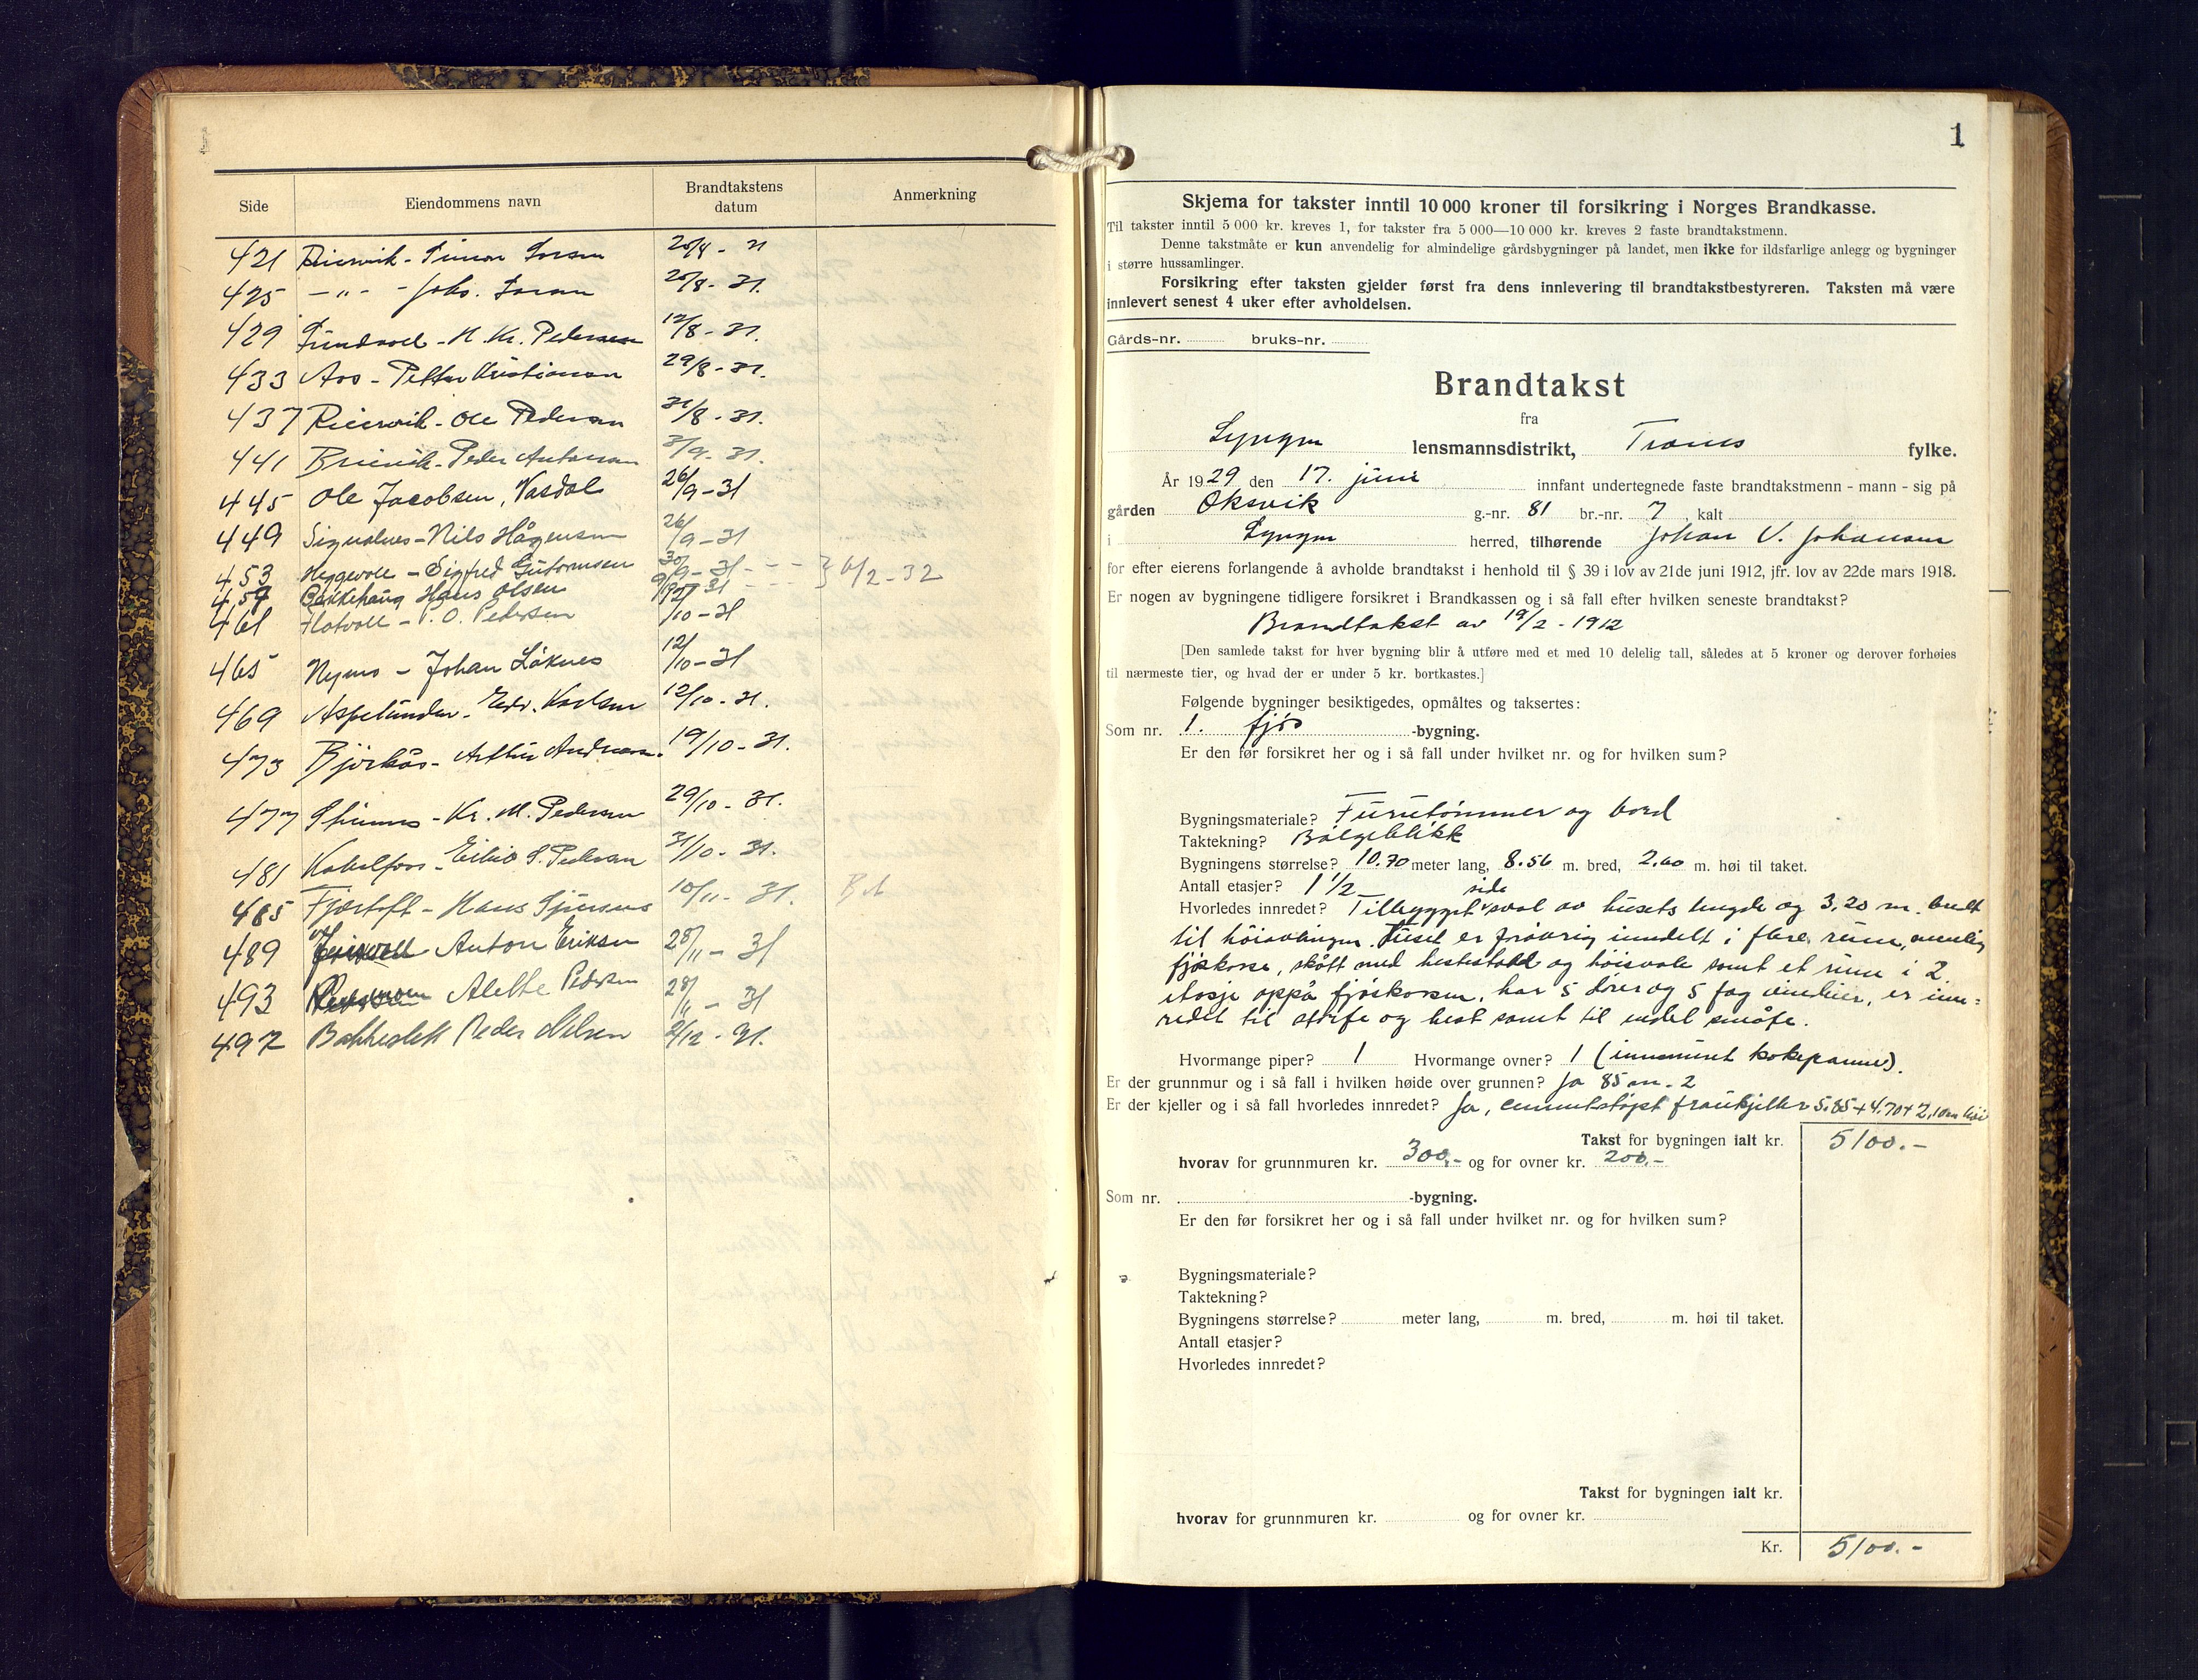 Side Eiendommens navn Brandtakstens datum Anmerkning
421
425 — " - - Johs.
429 - H. Kr. Pedersen 12/8 - 31.
433 Aas - Petter Kristiansen 29/8 - 31.
437 - Ole Pedersen 31/8 - 31.
441 - Peder Antonsen 3/9 - 31.
445 Ole Jacobsen, Vasdal 26/9 - 31
449 Signalnes - Nils Hågensen 26/9 - 31
453 Heggevoll - Sigfred Gutormsen 30/9 - 31 - - - } 6/2 - 32
457 Bakkehaug Hans Olsen
461 Flatvoll - P. O. Pedersen /10 - 31
465 - Johan Løknes 12/10 - 31
469 - Edv. Karlsen 12/10 - 31.
473 Bjørkås - Arthur Andreasen. 19/10 - 31.
477 - Kr. M. Pedersen 29/10 - 31.
481 31/10 - 31.
485 Fjærtoft - Hans 10/11 - 31.
489 Anton Eriksen 28/11 - 31
493 Alette Pedersen 28/11 - 31
497 Bakkeslett Peder Nilsen 2/12 - 31.
1
Skjema for takster inntil 10 000 kroner til forsikring i Norges Brandkasse.
Til takster inntil 5 000 kr. kreves 1, for takster fra 5 000—10 000 kr. kreves 2 faste brandtakstmenn.
Denne takstmåte er kun anvendelig for almindelige gårdsbygninger på landet, men ikke for ildsfarlige anlegg og bygninger
i større hussamlinger.
Forsikring efter taksten gjelder først fra dens innlevering til brandtakstbestyreren. Taksten må være
innlevert senest 4 uker efter avholdelsen.
Gårds-nr. bruks-nr.
Brandtakst
fra
Lyngen lensmannsdistrikt, Troms fylke.
År 1929 den 17. juni innfant undertegnede faste brandtakstmenn - mann - sig på
gården Oksvik g.-nr. 81 br.-nr. 7 kalt
i Lyngen herred, tilhørende Johan V. Johansen
for efter eierens forlangende å avholde brandtakst i henhold til § 39 i lov av 21de juni 1912, jfr. lov av 22de mars 1918.
Er nogen av bygningene tidligere forsikret i Brandkassen og i så fall efter hvilken seneste brandtakst?
Brandtakst av 19/2 - 1912
[Den samlede takst for hver bygning blir å utføre med et med 10 delelig tall, således at 5 kroner og derover forhøies
til nærmeste tier, og hvad der er under 5 kr. bortkastes.]
Følgende bygninger besiktigedes, opmåltes og taksertes:
Som nr. 1. fjøs -bygning.
Er den før forsikret her og i så fall under hvilket nr. og for hvilken sum?
Bygningsmateriale? Furutømmer og bord
Taktekning? Bølgeblikk
Bygningens størrelse? 10.70 meter lang, 8.56 m. bred, 2.60 m. høi til taket.
Antall etasjer? 1 1/2
Hvorledes innredet? Tilbygget side sval av husets lengde og 3,20 m. bredt
til høiavlingen. Huset er forøvrig inndelt i flere rum, nemlig
fjøskorse, skått med hestestald og høisvale samt et rum i 2
etasje oppå fjøskorsen, har 5 dører og 5 fag vinduer, er inn=
redet til storfe og hest samt til endel småfe.
Hvormange piper? 1 Hvormange ovner? 1 (innmuret kokepanne).
Er der grunnmur og i så fall i hvilken høide over grunnen? Ja 85 cm.
Er der kjeller og i så fall hvorledes innredet? Ja, cementstøpt 5.85 + 4.70 + 2,10 m høi
Takst for bygningen ialt kr. 5100.-
hvorav for grunnmuren kr. 300.- og for ovner kr. 200.-
Som nr. -bygning.
Er den før forsikret her og i så fall under hvilket nr. og for hvilken sum?
Bygningsmateriale?
Taktekning?
Bygningens størrelse? meter lang, m. bred, m. høi til taket.
Antall etasjer?
Hvorledes innredet?
Takst for bygningen ialt kr.
hvorav for grunnmuren kr. og for ovner kr.
Kr. 5100.-